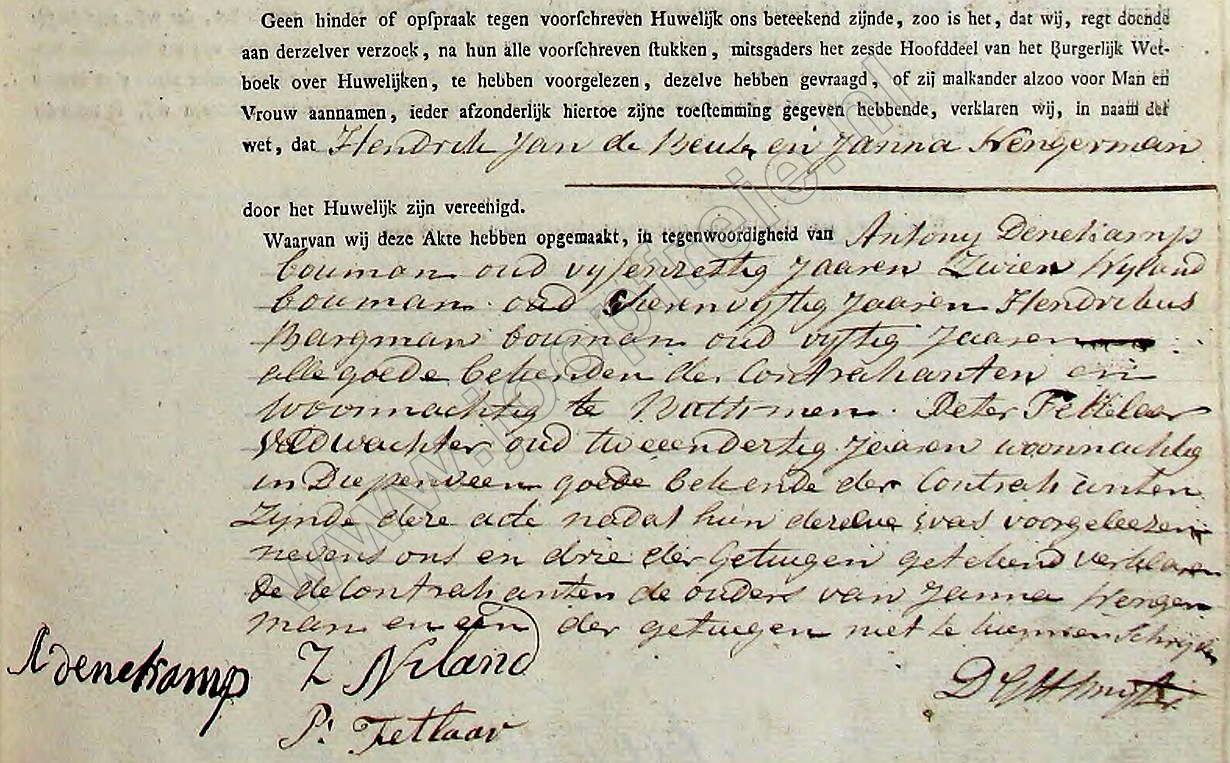 Geen hinder of opſpraak tegen voorſchreven Huwelijk ons beteekend zijnde, zoo is het, dat wij, regt doende
aan derzelver verzoek, na hun alle voorſchreven ſtukken, mitsgaders het zesde Hoofddeel van het Burgerlijk Wet-
boek over Huwelijken, te hebben voorgelezen, dezelve hebben gevraagd, of zij malkander alzoo voor Man en
Vrouw aannamen, ieder afzonderlijk hiertoe zijne toeſtemming gegeven hebbende, verklaren wij, in naam der
wet, dat Hendrik Jan de en Janna Hengerman
door het Huwelijk zijn vereenigd.
Waarvan wij deze Akte hebben opgemaakt, in tegenwoordigheid van Antony Denekamp
bouman oud vyfenzestig Jaaren Zwier Nyland
bouman oud vyftig Jaaren Hendrikus
Bargman bouman oud vyftig Jaaren
alle goede bekenden der Contrahanten en
woonnachtig te Bathmen. Peter Fettelaar
Veldwachter oud tweeendertig Jaaren woonnachtig
in Diepenveen goede bekende der Contrahanten
Zynde deze acte nadat hun dezelve was voorgeleezen
nevens ons en drie der Getuigen getekend verklaren
de de Contrahanten de ouders van Janna Henger
man en een der getuigen niet te kunnen Schryven
A denekamp
Z Niland
P: Fetlaar
www.joopfreie.nl